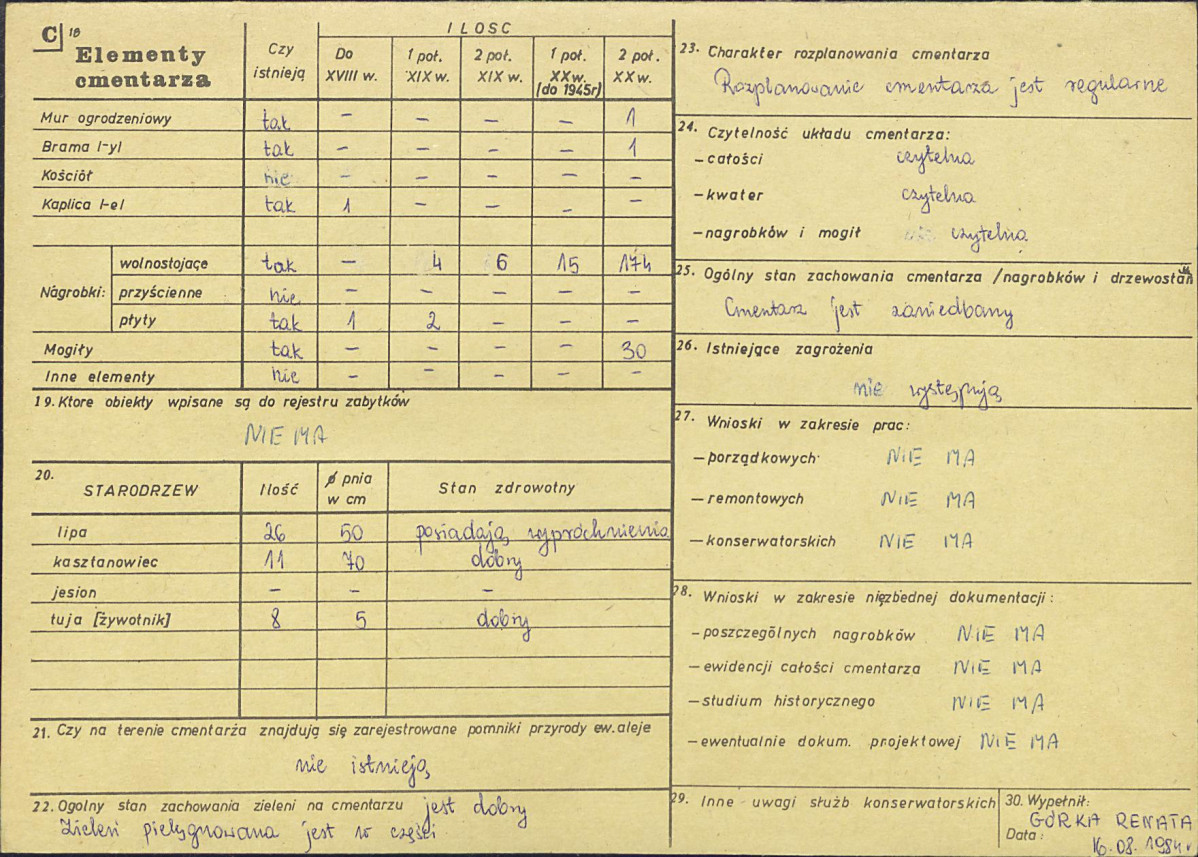 C 18
Elementy cmentarza | Czy istnieją | ILOSC
Do XVIII w. | 1 poł. XIX w. | 2 poł. XIX w. | 1 poł. XX w. (do 1945r) | 2 poł. XX w.
Mur ogrodzeniowy | tak | – | – | – | – | 1
Brama /-y/ | tak | – | – | – | – | 1
Kościół | nie | – | – | – | – | –
Kaplica /-e/ | tak | 1 | – | – | – | –
Nagrobki: wolnostojące | tak | – | 4 | 6 | 15 | 174
przyścienne | nie | – | – | – | – | –
płyty | tak | 1 | 2 | – | – | –
Mogiły | tak | – | – | – | – | 30
Inne elementy | nie | – | – | – | – | –
19. Ktore obiekty wpisane są do rejestru zabytków
NIE MA
20. STARODRZEW | Ilość | ø pnia w cm | Stan zdrowotny
lipa | 26 | 50 | posiadają wypróchnienia
kasztanowiec | 11 | 70 | dobry
jesion | – | – | –
tuja [żywotnik] | 8 | 5 | dobry
21. Czy na terenie cmentarza znajdują się zarejestrowane pomniki przyrody ew. aleje
nie istnieją
22. Ogolny stan zachowania zieleni na cmentarzu jest dobry
Zieleń pielęgnowana jest w części
23. Charakter rozplanowania cmentarza
Rozplanowanie cmentarza jest regularne
24. Czytelność układu cmentarza:
– całości czytelna
– kwater czytelna
– nagrobków i mogił czytelna
25. Ogólny stan zachowania cmentarza /nagrobków i drzewostan
Cmentarz jest zaniedbany
26. Istniejące zagrożenia
nie występują
27. Wnioski w zakresie prac:
– porządkowych NIE MA
– remontowych NIE MA
– konserwatorskich NIE MA
28. Wnioski w zakresie niezbednej dokumentacji:
– poszczególnych nagrobków NIE MA
– ewidencji całości cmentarza NIE MA
– studium historycznego NIE MA
– ewentualnie dokum. projektowej NIE MA
29. Inne uwagi służb konserwatorskich
30. Wypełnił:
GÓRKA RENATA
Data: 16.08.1984r